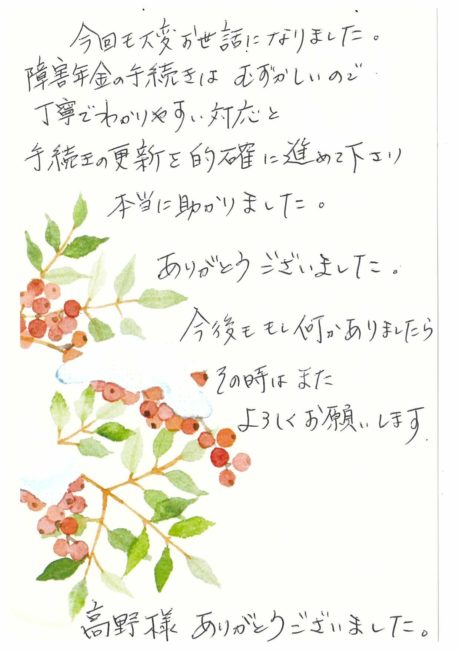 今回も大変お世話になりました。
障害年金の手続きは むずかしいので
丁寧でわかりやすい対応と
手続きの更新を的確に進めて下さり
本当に助かりました。
ありがとうございました。
今後も もし何かありましたら
その時は また
よろしくお願いします
高野様 ありがとうございました。